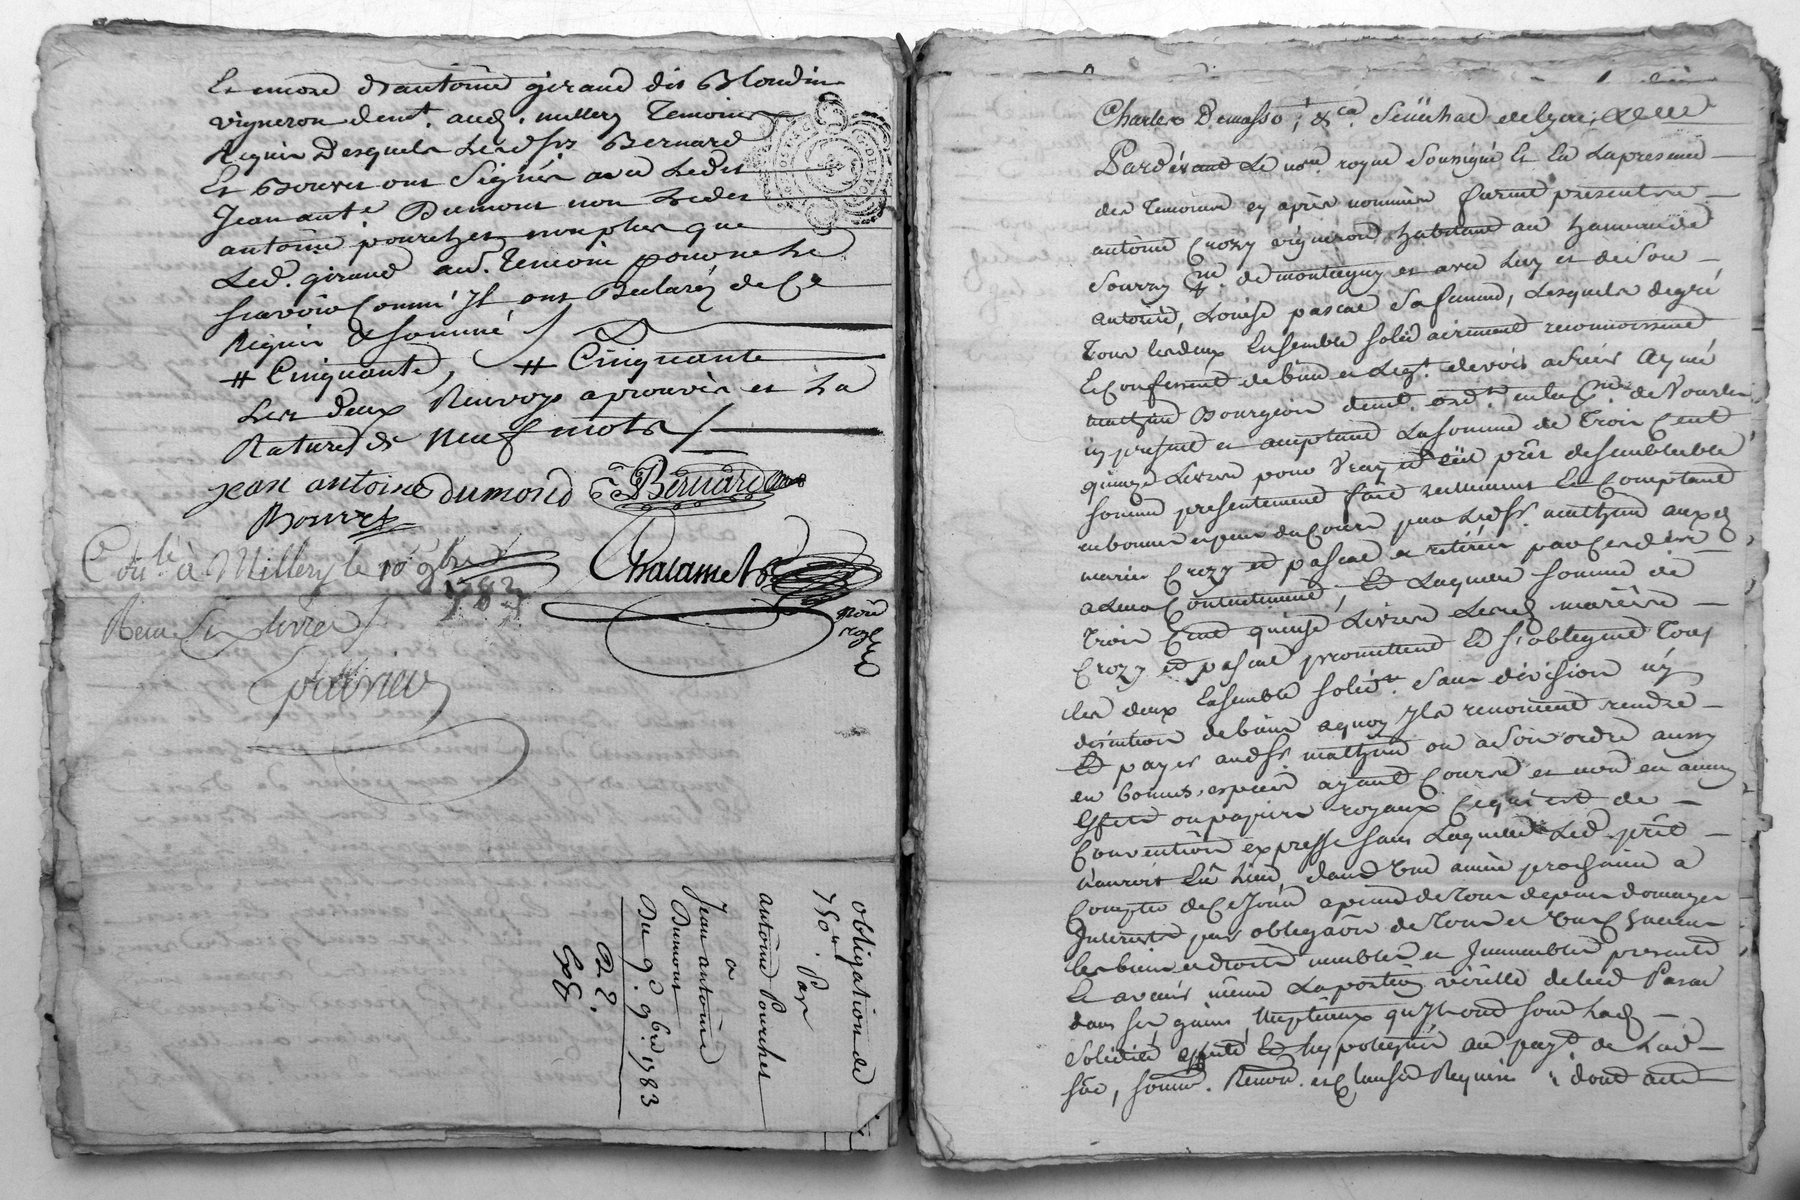 Et encore d'antoine giraud dit Blondin
vigneron demt. aud. millery Temoins
Requis Desquels Lesd. srs Bernard
Et Bouvet ont Signés avec Ledit
Jean ante Dumont non Ledit
antoine pourchet non plus que
Led. giraud aud. Temoin pour ne le
scavoir Comm' Jl ont Declaréz de Ce
Requis & sommé /
# Cinquante, # Cinquante
Les deux Renvoys aprouvés et La
Rature de neuf mots /
jean antoine dumond Bernard
Bouvet
Chalamel
nore
royal
Conlé à Millery le 10 9bre
1783
Reçu Six livres
obligation de
750 ₶. Par
antoine Pourchet
a
Jean antoine
Dumont
Du 9e. 9bre 1783
Charles Demasso, &ca. Sénéchal de Lyon,
Pardevant Le nore. royal Soussigné Et En La presence
des Temoins cy après nommés furent presents
antoine Crozy vigneron habitant au hameau de
Sourzy psse. de montagny et avec Luy et de Son
autorité, Louise pascal Sa femme, Lesquels de gré
Tous Les deux Ensemble solidairement reconnoissent
Et Confessent debvoir
mathieu Bourgeois demt. ordt. en la psse. de Vourles
icy present et acceptant La somme de Trois Cent
quinze Livres pour Vray et réel prêt de semblable
somme presentement fait reellement Et Comptant
en bonnes especes du Cours par Led. sr. mathieu auxd.
mariés Crozy et pascal et retirés par Ces derniers
a Leur Contentement, Et Laquelle somme de
Trois Cent quinze Livres Lesd. mariés
Crozy et pascal promettent Et s'obligent Tous
les deux Ensemble solidt. Sans division ny
discution de biens aquoy Jls renoncent rendre
Et payer aud. sr. mathieu ou a Son ordre aussy
en bonnes especes ayant Cours et non en aucuns
Effets ou papiers royaux Ce qui est de
Convention expresse sans Laquelle Led. prêt
n'auroit Eû Lieu, dans Une année prochaine a
Compter de Ce Jour a peine de Tous depens domages
Interests par obligation de Tous et Uns Chacuns
Les biens et droits meubles et Immeubles presents
Et avenir même La portion virille de lad. Pascal
dans ses gains Nuptiaux qu'Jls ont sous Lad.
Solidité affecté Et hypotequés au payt. de Lad.
sde, somm. Renon. et Clauses Requises, dont acte